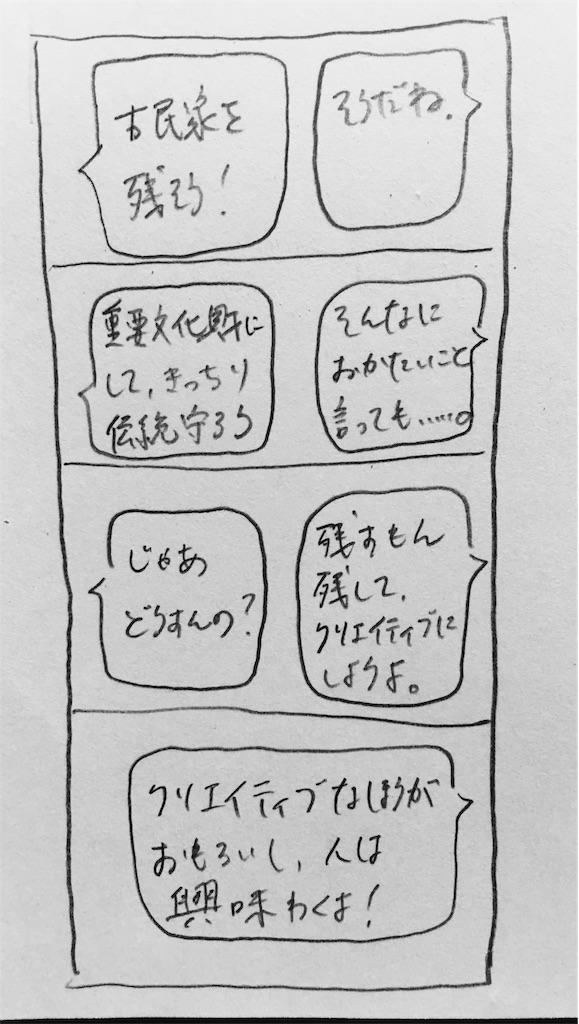 古民家を
残そう！
そうだね.
重要文化財に
して、きっちり
伝統守ろう
そんなに
おかたいこと
言っても……。
じゃあ
どうすんの？
残すもん
残して、
クリエイティブに
しようよ。
クリエイティブなほうが
おもろいし、人は
興味わくよ！